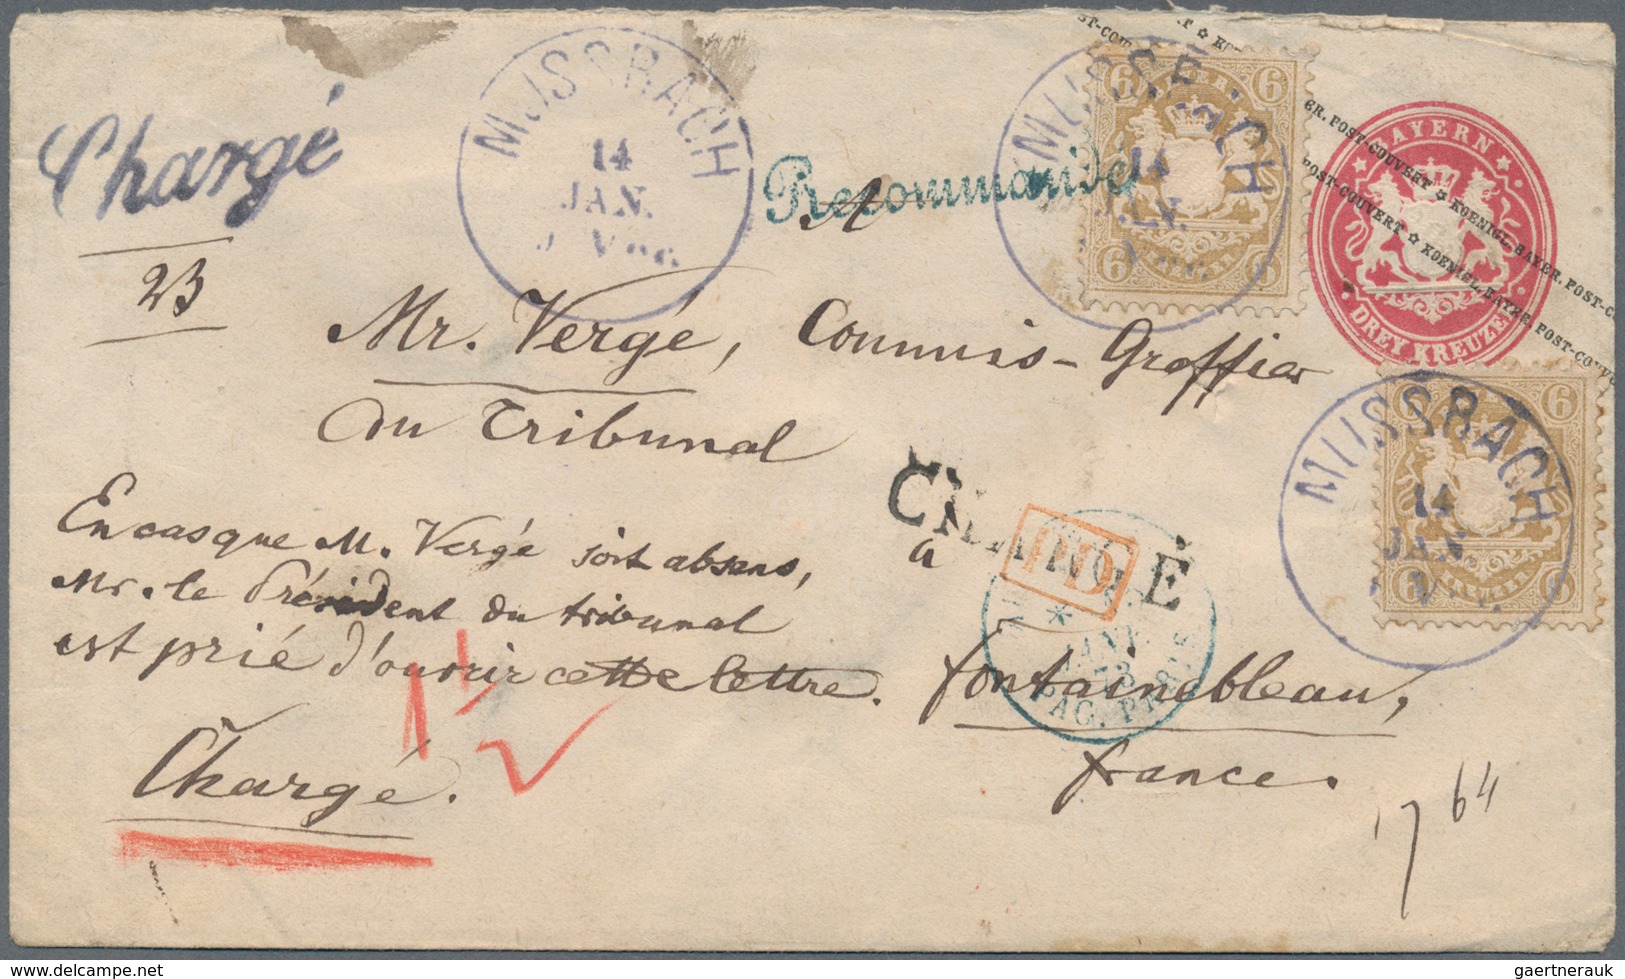 Chargé
MUSSBACH
14
JAN.
Recommandé
A
MUSSBACH
14
JAN.
6 BAYERN 6
6 6
KOENIGL. BAYER. POST-COUVERT ✩ KOENIGL. BAYER. POST-COUVERT
BAYERN
DREY KREUZER
23
Mr. Vergé, Commis-Greffier
du Tribunal
MUSSBACH
14
JAN
6 6
6 6
CHARGÉ
PD
à
En cas que M. Vergé soit absens,
Mr. le Président du tribunal
est prié d'ouvrir cette lettre.
1 1/2
JANV.
73
fontainebleau,
france.
Chargé.
64
gaertnerauk